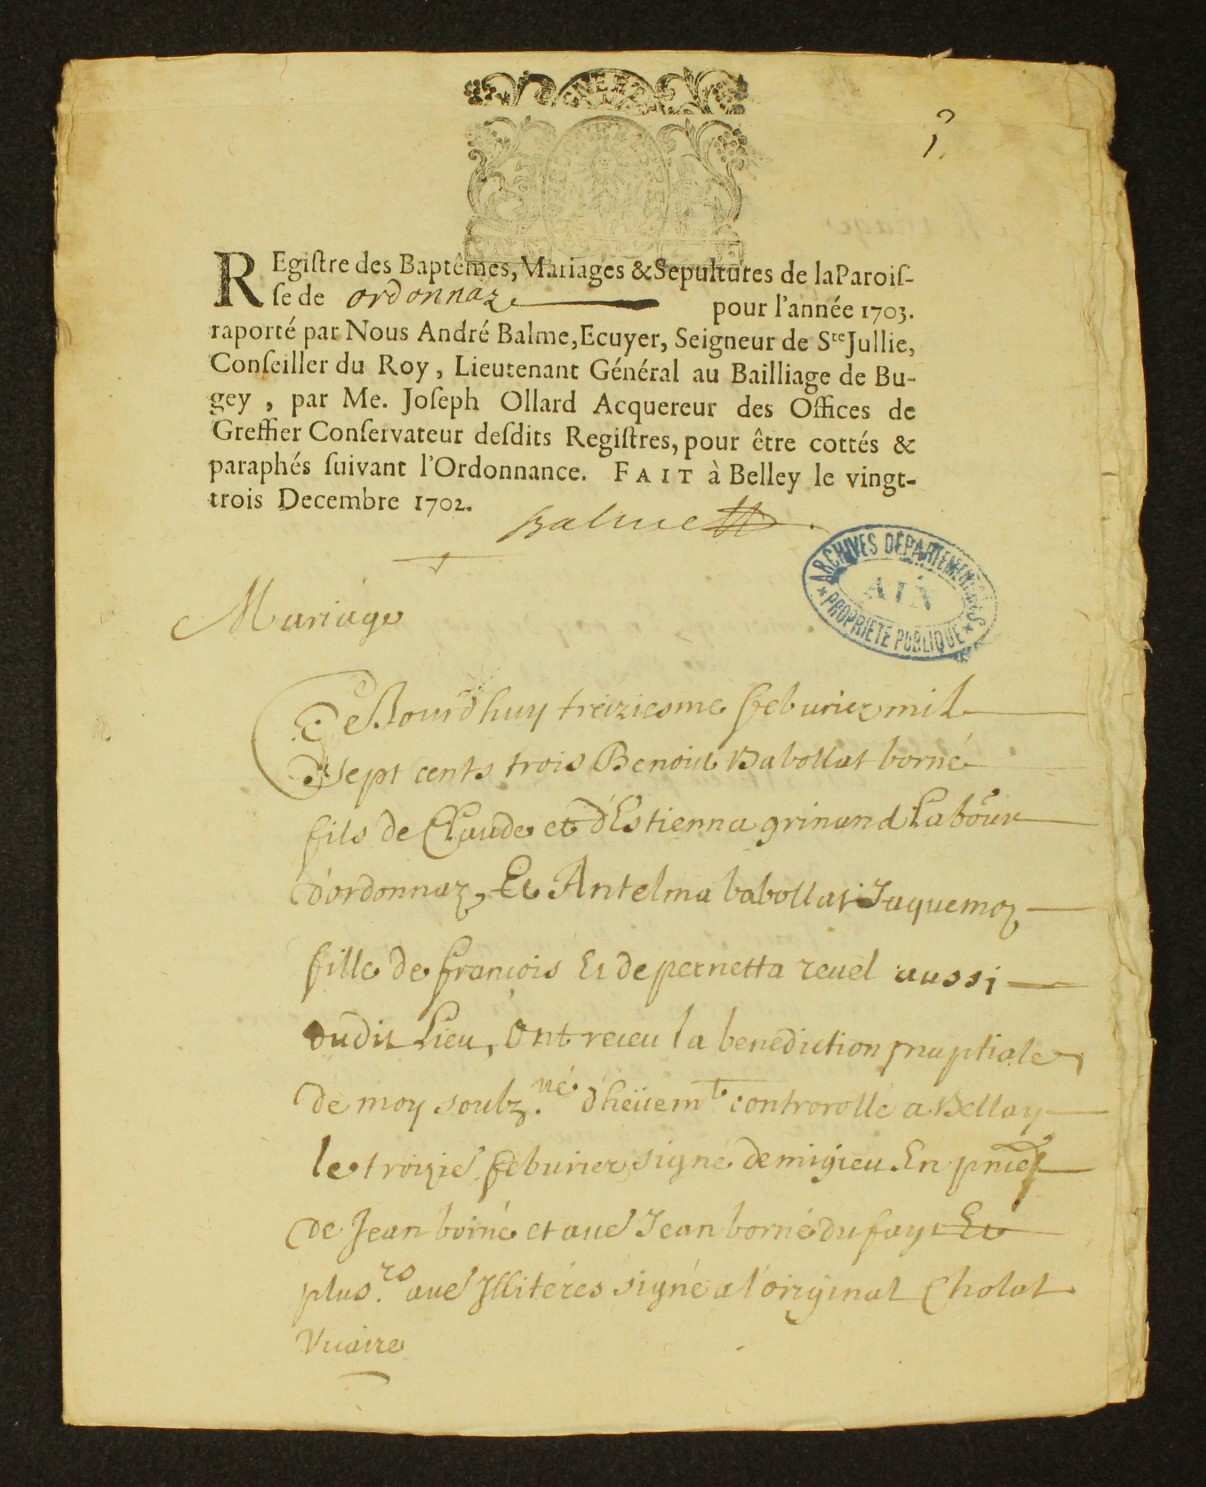 1.
REgiſtre des Baptêmes, Mariages & Sepultures de la Paroiſ-
ſe de ordonnaz pour l'année 1703.
raporté par Nous André Balme, Ecuyer, Seigneur de Ste Jullie,
Conſeiller du Roy, Lieutenant Général au Bailliage de Bu-
gey, par Me. Joſeph Ollard Acquereur des Offices de
Greffier Conſervateur deſdits Regiſtres, pour être cottés &
paraphés ſuivant l'Ordonnance. FAIT à Belley le vingt-
trois Decembre 1702.
Balme
ARCHIVES DÉPARTEMENTALES
AIN
PROPRIETE PUBLIQUE
Mariage
CeJourdhuy treiziesme feburier mil
sept cents trois Benoit Babollat borné
fils de Claude et d'Estienna grinand Labour
d'ordonnaz, Et Antelma babollat Jaquemoz
fille de francois Et de pernetta reuel aussi
dudit Lieu, Ont receu la benediction nuptiale
de moy soubz.né d'heüemt controrollé a Bellay
le troizie feburier signé demigieu En pnce
de Jean borné et aue Jean borné du fay Et
plus.rs aue Illiteres signé a l'original Cholat
Vicaire